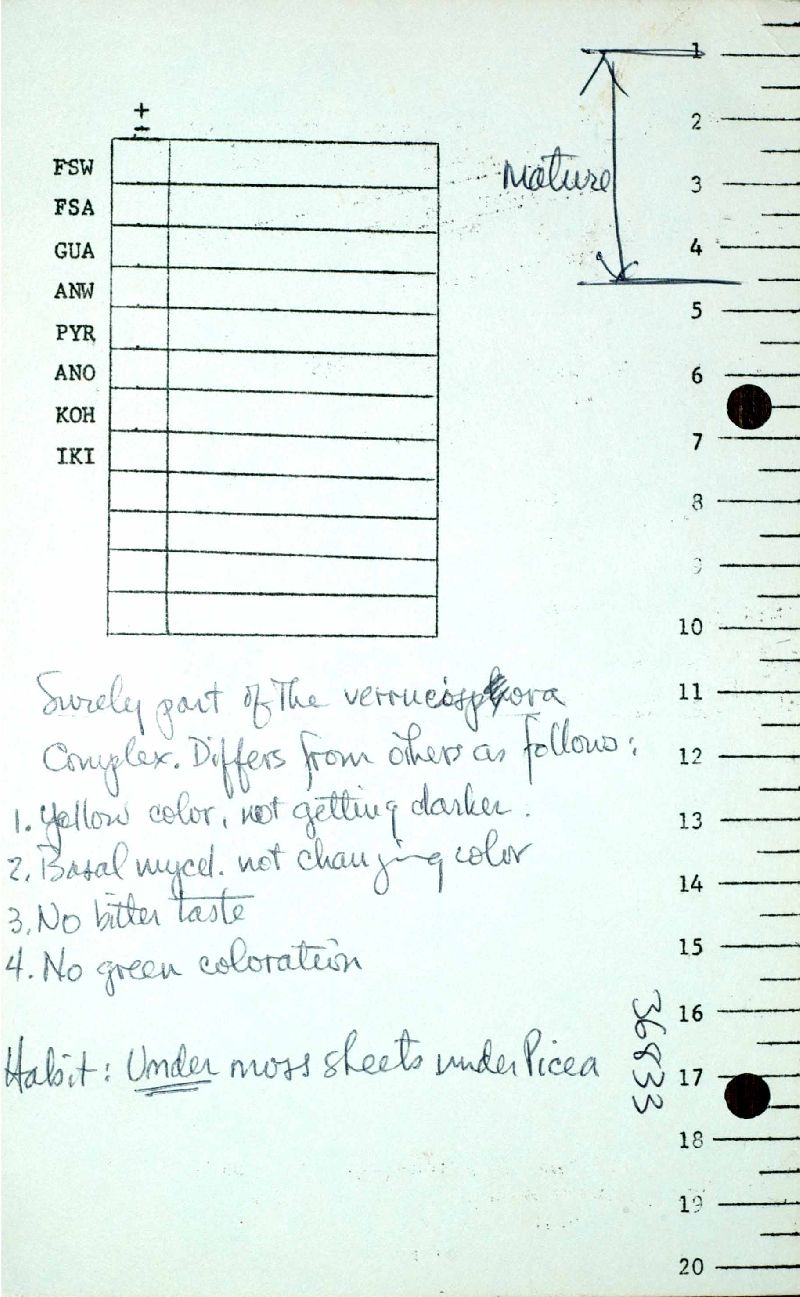 +
−
FSW
FSA
GUA
ANW
PYR
ANO
KOH
IKI
Mature
1
2
3
4
5
6
7
8
9
10
11
12
13
14
15
16
17
18
19
20
Surely part of the verrucospora
Complex. Differs from others as follows:
1. Yellow color, not getting darker.
2. Basal mycel. not changing color
3. No bitter taste
4. No green coloration
Habit: Under moss sheets under Picea
36833